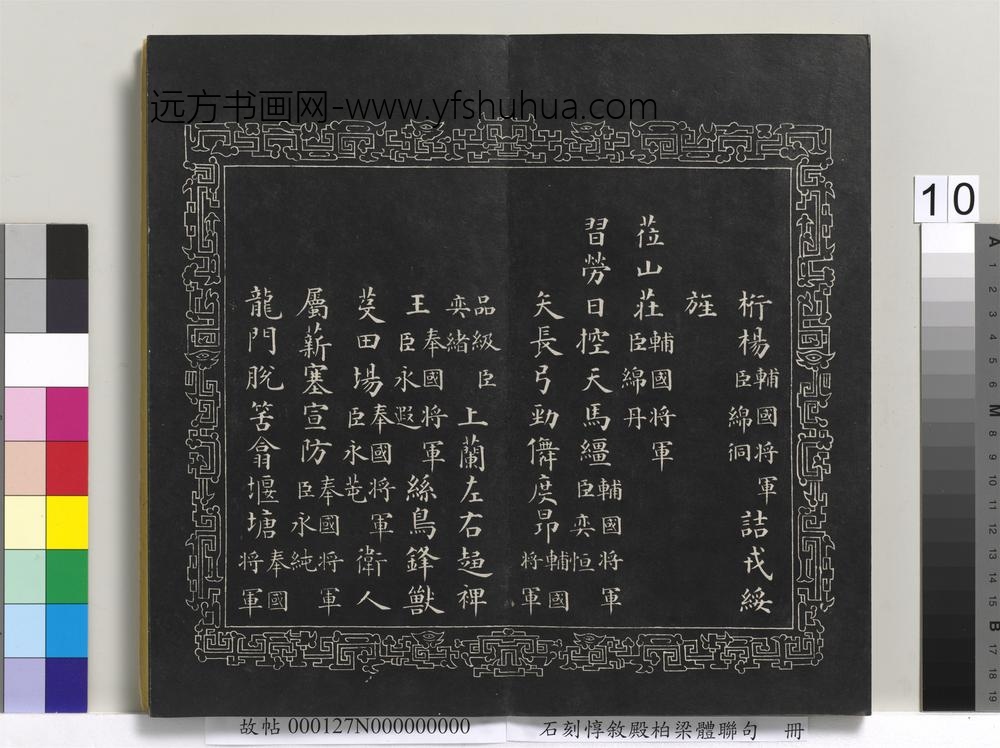 远方书画网-www.yfshuhua.com
10
桁楊輔國将軍臣綿洞詰戎綏
旌
莅山莊輔國将軍臣綿丹
習勞日控天馬繮輔國将軍臣奕恒
矢長弓勁儛度昂輔國将軍
品級臣奕緒上蘭左右裨
王奉國将軍臣永遐絲鳥鋒獸
芟田場奉國将軍臣永衛人
屬薪塞宣防奉國将軍臣永純
龍門脫筈翕堰塘奉國将軍
故帖 000127N000000000
石刻惇敘殿柏梁體聯句 冊
A 1 2 3 4 5 6 M 8 9 10 11 12 13 14 15 B 17 18 19